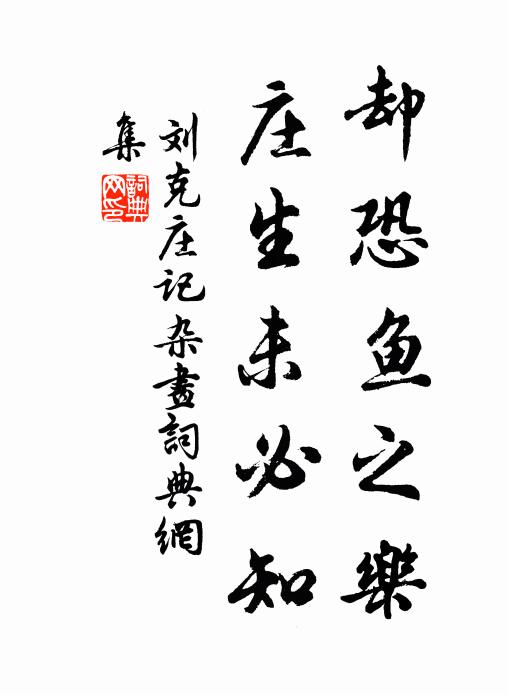 却恐鱼之樂
庄生未必知
刘克庄记杂畫詞典網
集
詞典
网印